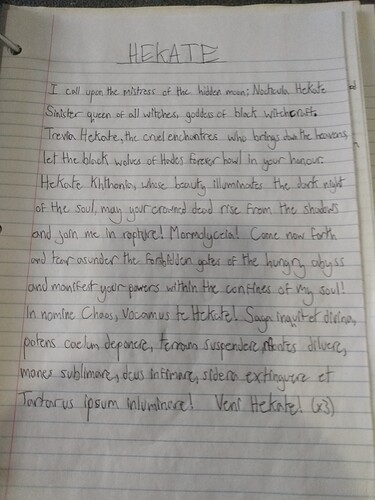 HEKATE
I call upon the mistress of the hidden moon; Noctvula Hekate
Sinister queen of all witches, goddess of black witchcraft.
Trevia Hekate, the cruel enchantres who brings down the heavens,
let the black wolves of Hades forever howl in your honour.
Hekate Khthonia, whose beauty illuminates the dark night
of the soul, may your crowned dead rise from the shadows
and join me in rapture! Mormolyceia! Come now forth
and tear asunder the forbidden gates of the hungry abyss
and manifest your powers within the confines of my soul!
In nomine Chaos, vocamus te Hekate! Saga inquit et divina,
potens caelum deponere, terram suspendere, Montes diluere,
manes sublimare, deus infimare, sidera extinguere et
Tartarus ipsum inluminare! Veni Hekate! (x3)